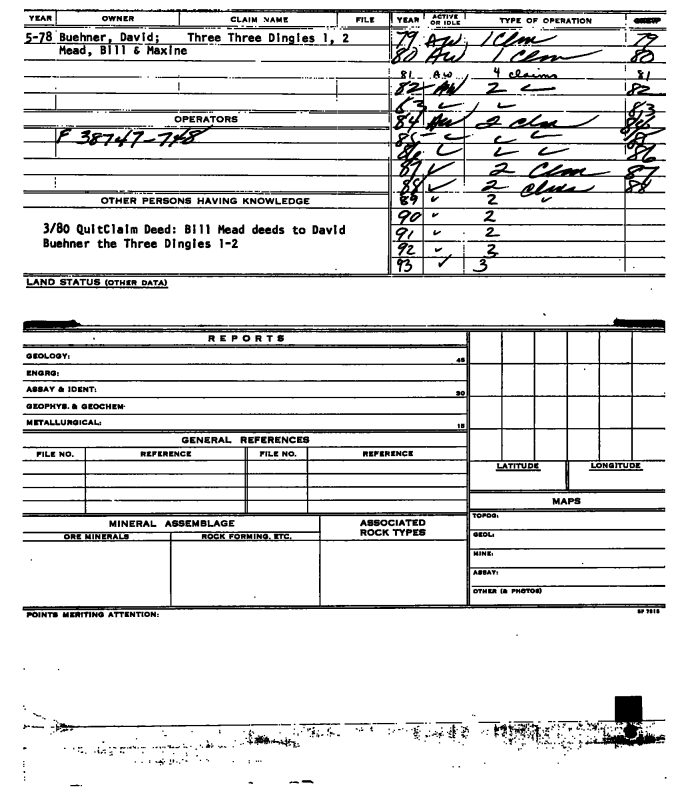 YEAR OWNER CLAIM NAME FILE YEAR ACTIVE OR IDLE TYPE OF OPERATION
5-78 Buehner, David; Three Three Dingles 1, 2 79 AW 1 Clm 79
Mead, Bill & Maxine 80 AW 1 Clm 80
81 AW 4 claims 81
82 AW 2 ✓ 82
83 ✓ ✓ 83
OPERATORS 84 AW 2 Clm
F 38747-748 85 ✓ ✓ ✓ 85
86 ✓ ✓ ✓ 86
87 ✓ 2 Clm 87
88 ✓ 2 Clms 88
OTHER PERSONS HAVING KNOWLEDGE 89 ✓ 2 ✓
90 ✓ 2
3/80 QuitClaim Deed: Bill Mead deeds to David 91 ✓ 2
Buehner the Three Dingles 1-2 92 ✓ 3
93 ✓ 3
LAND STATUS (OTHER DATA)
REPORTS
GEOLOGY: 45
ENGRG:
ASSAY & IDENT: 30
GEOPHYS. & GEOCHEM-
METALLURGICAL: 15
GENERAL REFERENCES
FILE NO. REFERENCE FILE NO. REFERENCE
LATITUDE LONGITUDE
MAPS
MINERAL ASSEMBLAGE ASSOCIATED ROCK TYPES TOPOG:
ORE MINERALS ROCK FORMING, ETC. GEOL:
MINE:
ASSAY:
OTHER (& PHOTOS)
POINTS MERITING ATTENTION: SP 7515